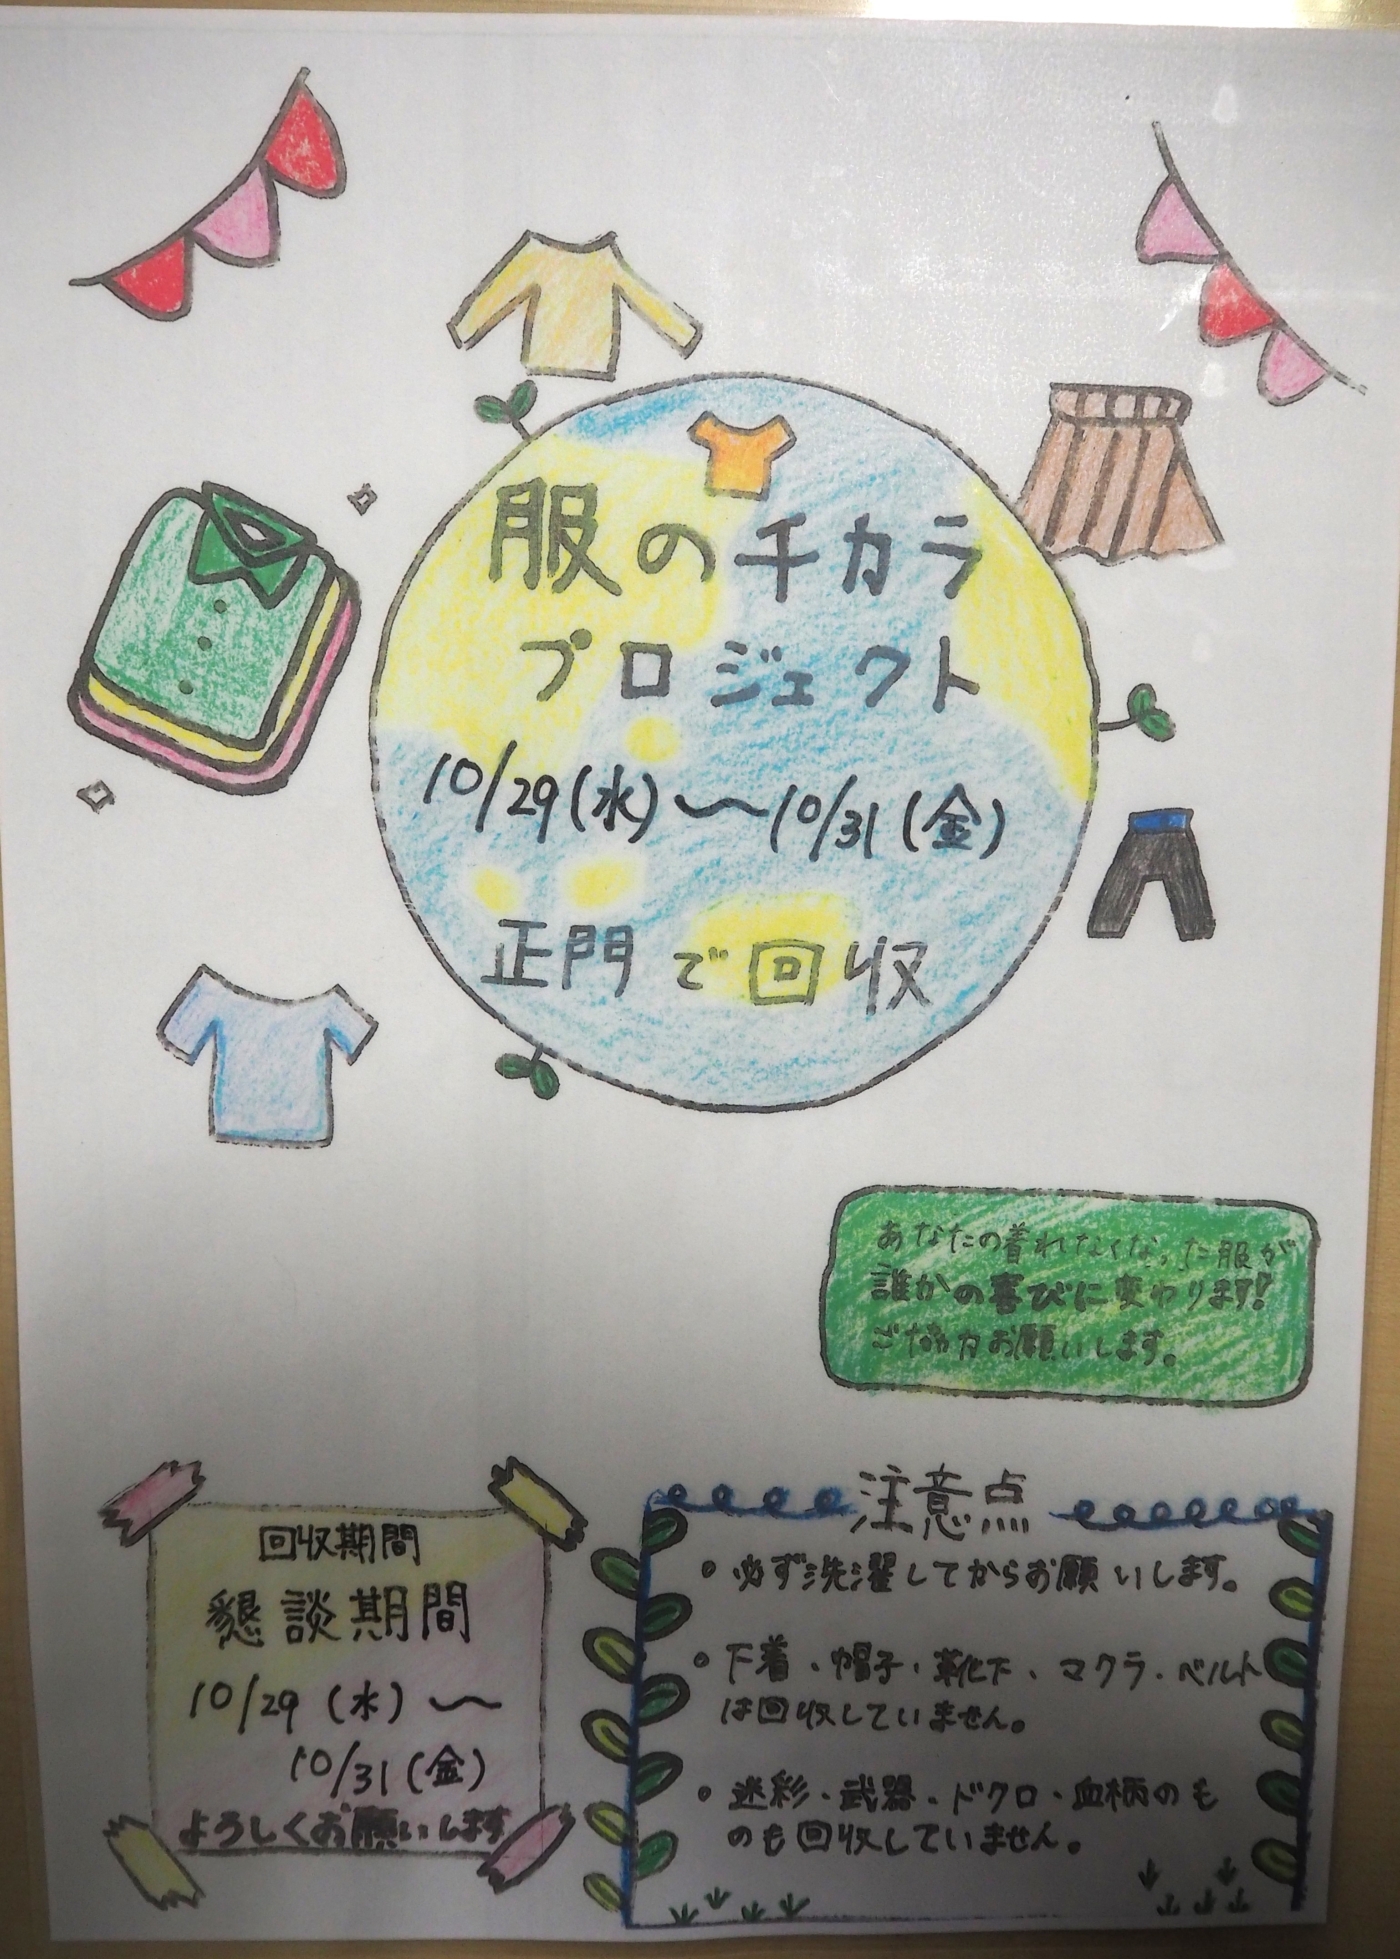 服のチカラ
プロジェクト
10/29(水)〜10/31(金)
正門で回収
あなたの着れなくなった服が
誰かの喜びに変わります!
ご協力お願いします。
回収期間
懇談期間
10/29(水)〜
10/31(金)
ようしくお願いします
注意点
・必ず洗濯してからお願いします。
・下着・帽子・靴下・マクラ・ベルト
は回収していません。
・迷彩・武器・ドクロ・血柄のも
のも回収していません。